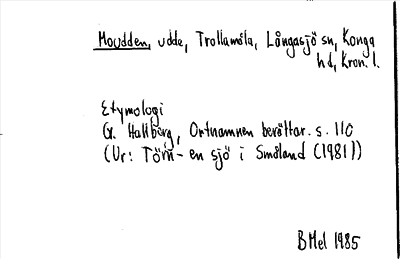 Moudden, udde, Trollamåla, Långasjö sn, Konga
hd, Kron. l.
Etymologi
G. Hallberg, Ortnamnen berättar. s. 110
(Ur: Törn - en sjö i Småland (1981))
BMel 1985